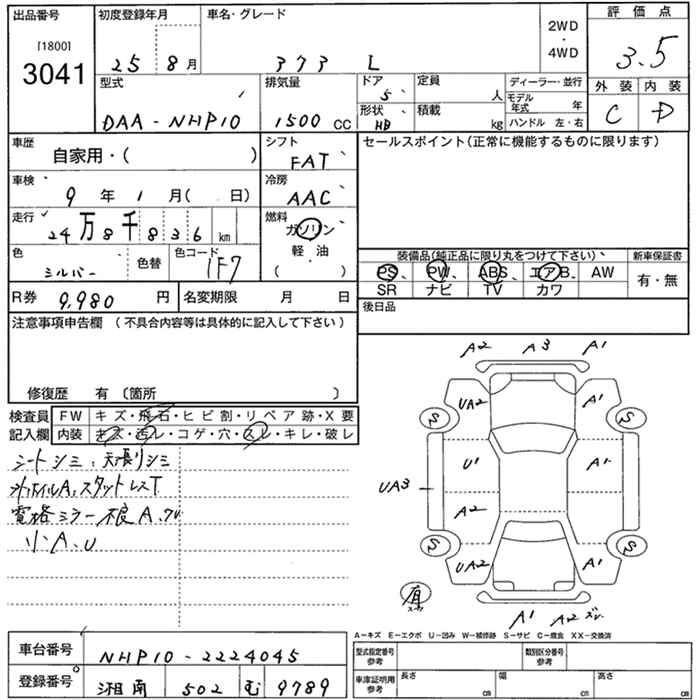 出品番号 初度登録年月 車名・グレード 2WD・4WD 評価点
[1800]
3041 25 8月 373 L 3.5
型式 排気量 ドア 5 定員 人 ディーラー・並行 外装 内装
DAA-NHP10 1500 CC 形状 HB 積載 kg モデル年式 年 C D
ハンドル 左・右
車歴 自家用・( ) シフト FAT セールスポイント(正常に機能するものに限ります)
車検 9年 1月( 日) 冷房 AAC
走行 24万8千836km 燃料 ガソリン
軽・油
( )
色 シルバー 色替 色コード 1F7
装備品(純正品に限り丸をつけて下さい) 新車保証書
PS、 PW、 ABS、 エアB、 AW 有・無
SR ナビ TV カワ
R券 9,980円 名変期限 月 日 後日品
注意事項申告欄 (不具合内容等は具体的に記入して下さい)
修復歴 有 〔箇所 〕
検査員記入欄 FW キズ・飛石・ヒビ割・リペア跡・X要
内装 キズ・汚レ・コゲ・穴・スレ・キレ・破レ
シートシミ、天張りシミ
ホイルA、スタットレスT
電格ミラー不良 A、
小A、U
A2 A3 A1
UA2 A1
S S
U1 A1
UA3
A2
S S
UA2 A1
A1 A2
A-キズ E-エクボ U-凹み W-補修跡 S-サビ C-腐食 XX-交換済
車台番号 NHP10-2224045
登録番号 湘南 502 む 9789
型式指定番号 参考 類別区分番号 参考
車庫証明用 参考 長さ cm 幅 cm 高さ cm